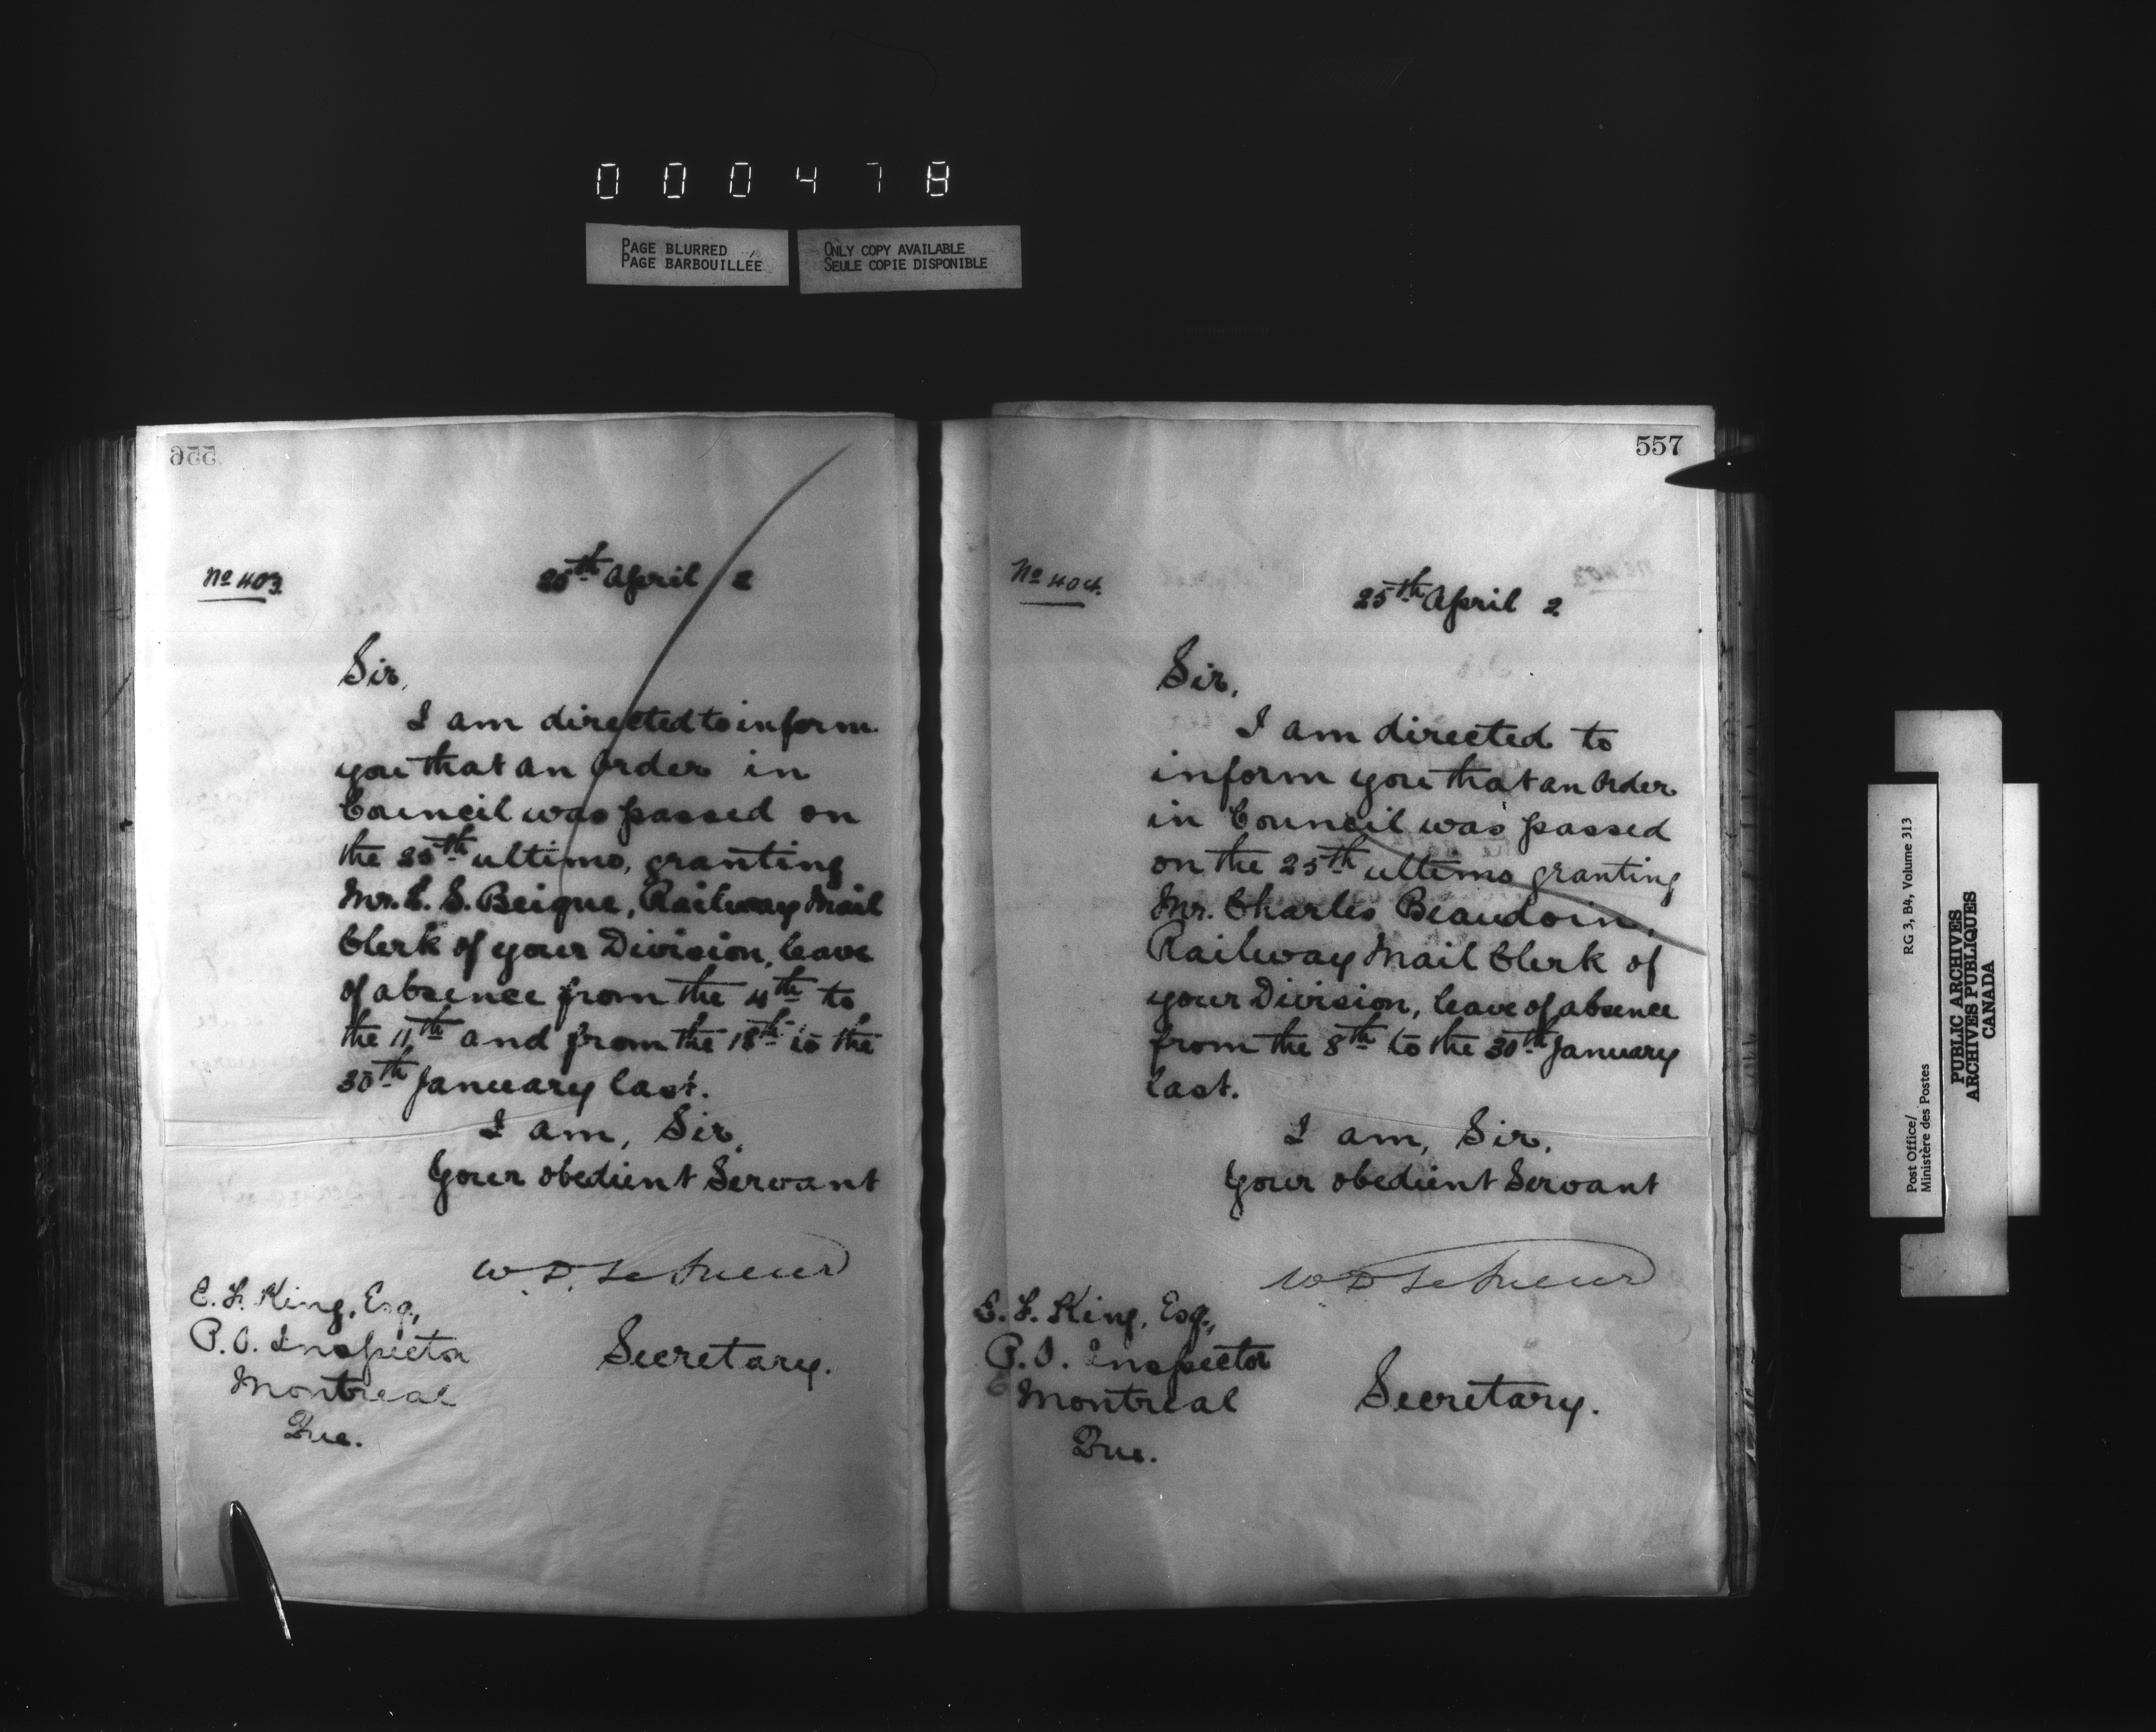 000478
PAGE BLURRED
PAGE BARBOUILLÉE
ONLY COPY AVAILABLE
SEULE COPIE DISPONIBLE
556
No 403.
25th April 2
Sir,
I am directed to inform
you that an Order in
Council was passed on
the 25th ultimo, granting
Mr. L. S. Beique, Railway Mail
Clerk of your Division, leave
of absence from the 4th to
the 11th and from the 18th to the
30th January last.
I am, Sir,
Your obedient Servant
W. D. LeSueur
Secretary.
E. F. King, Esq.,
P. O. Inspector
Montreal
Que.
557
No 404.
25th April 2
Sir,
I am directed to
inform you that an Order
in Council was passed
on the 25th ultimo granting
Mr. Charles Beaudoin,
Railway Mail Clerk of
your Division, leave of absence
from the 8th to the 30th January
last.
I am, Sir,
Your obedient Servant
W D LeSueur
Secretary.
E. F. King, Esq.,
P. O. Inspector
Montreal
Que.
Post Office/
Ministère des Postes
RG 3, B4, Volume 313
PUBLIC ARCHIVES
ARCHIVES PUBLIQUES
CANADA